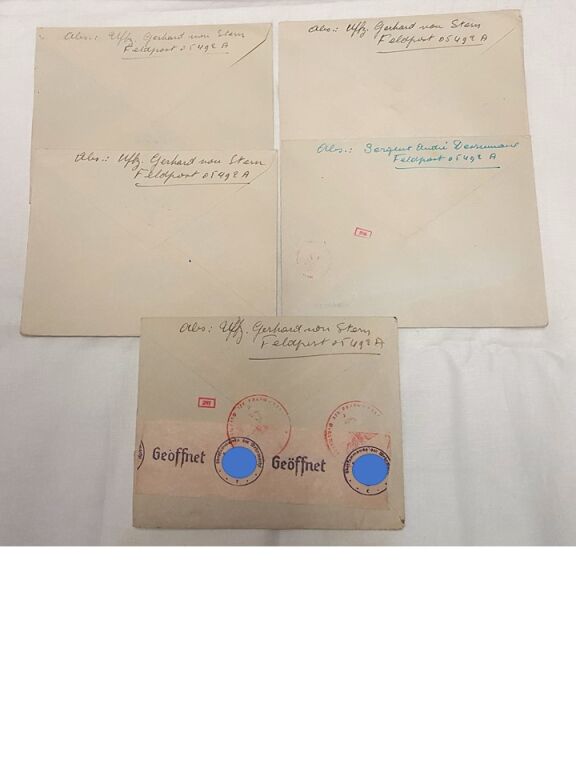 Abs.: Uffz. Gerhard von Stern
Feldpost 05492 A
Abs.: Uffz. Gerhard von Stern
Feldpost 05492 A
Abs.: Uffz. Gerhard von Stern
Feldpost 05492 A
Abs.: Sergent André
Feldpost 05492 A
Abs.: Uffz. Gerhard von Stern
Feldpost 05492 A
Geöffnet
Oberkommando der Wehrmacht
Geöffnet
Oberkommando der Wehrmacht